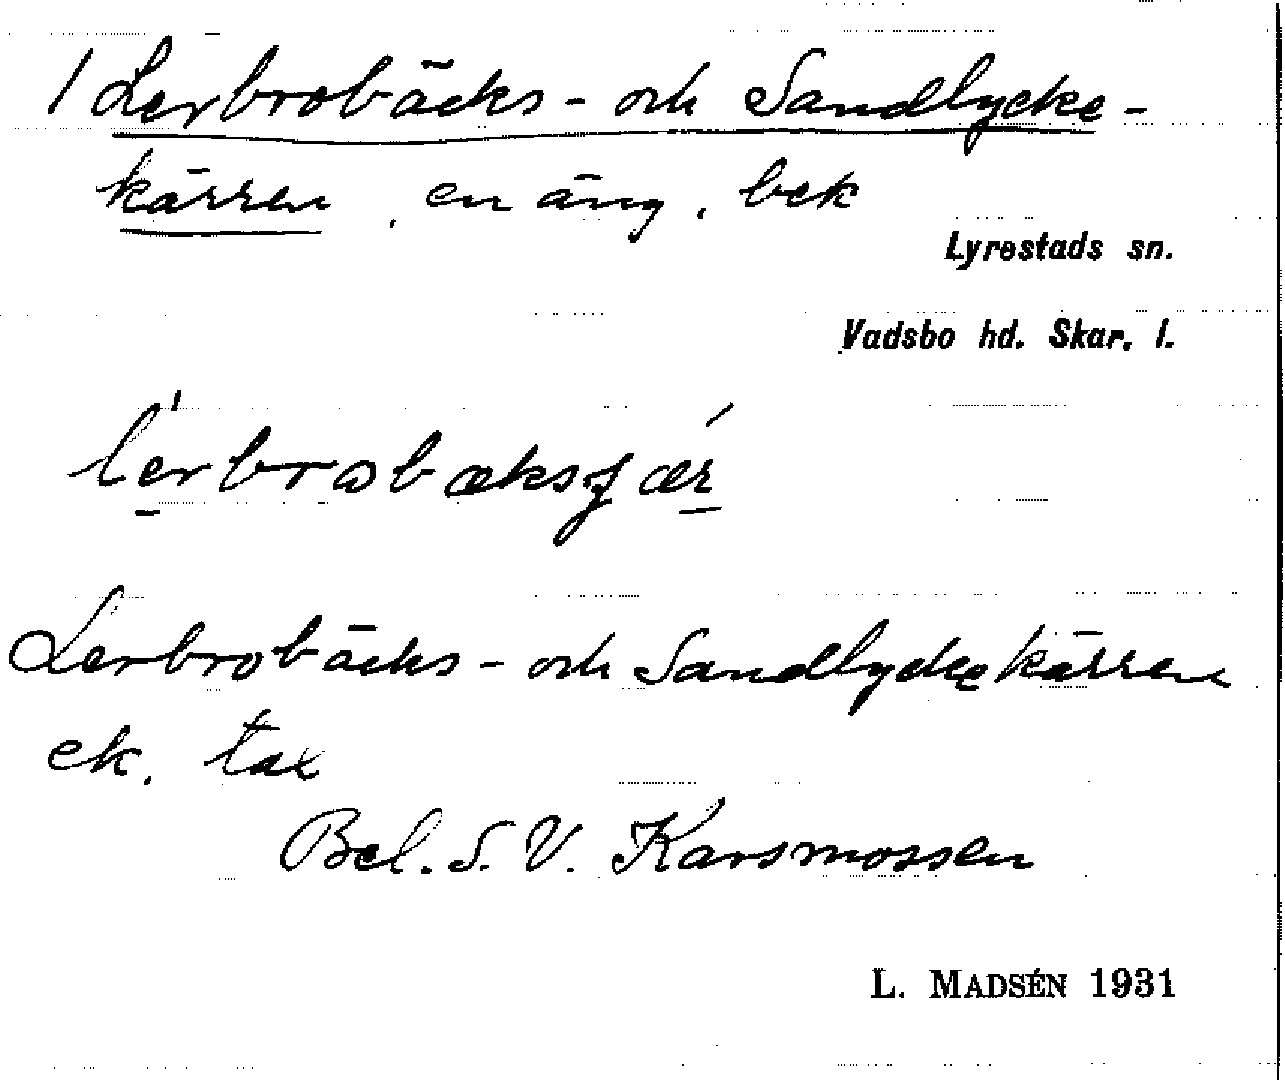 1 Lerbrobäcks- och Sandlycke-
kärren, en äng, bek
Lyrestads sn.
Vadsbo hd. Skar. l.
Lerbrobäcks- och Sandlyckekärren
ek. tax
Bel. S. V. Karsmossen
L. MADSÉN 1931